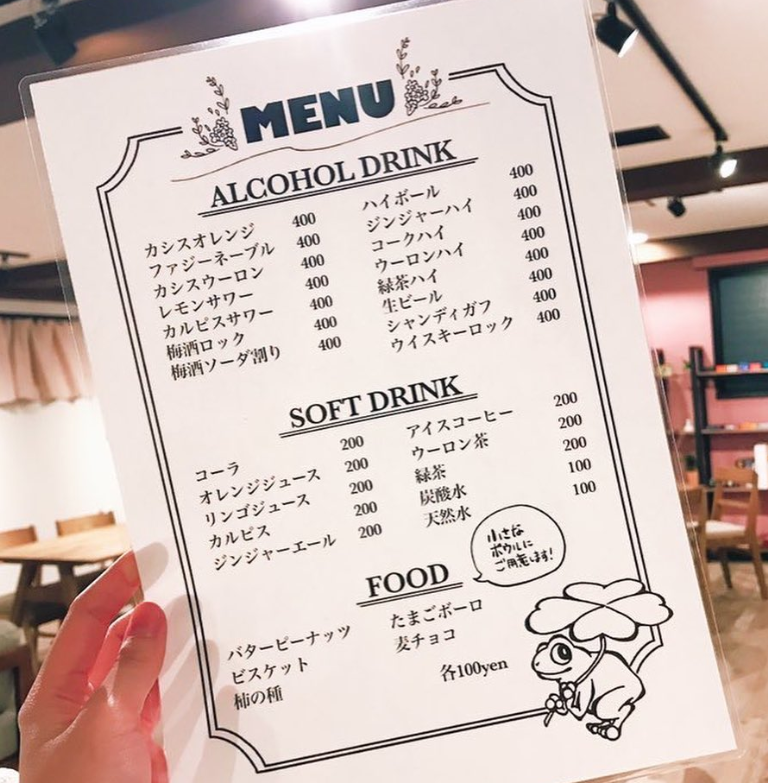 MENU
ALCOHOL DRINK
カシスオレンジ 400
ファジーネーブル 400
カシスウーロン 400
レモンサワー 400
カルピスサワー 400
梅酒ロック 400
梅酒ソーダ割り 400
ハイボール 400
ジンジャーハイ 400
コークハイ 400
ウーロンハイ 400
緑茶ハイ 400
生ビール 400
シャンディガフ 400
ウイスキーロック 400
SOFT DRINK
コーラ 200
オレンジジュース 200
リンゴジュース 200
カルピス 200
ジンジャーエール 200
アイスコーヒー 200
ウーロン茶 200
緑茶 200
炭酸水 100
天然水 100
FOOD
小さな
ボウルに
ご用意します!
バターピーナッツ
ビスケット
柿の種
たまごボーロ
麦チョコ
各100yen